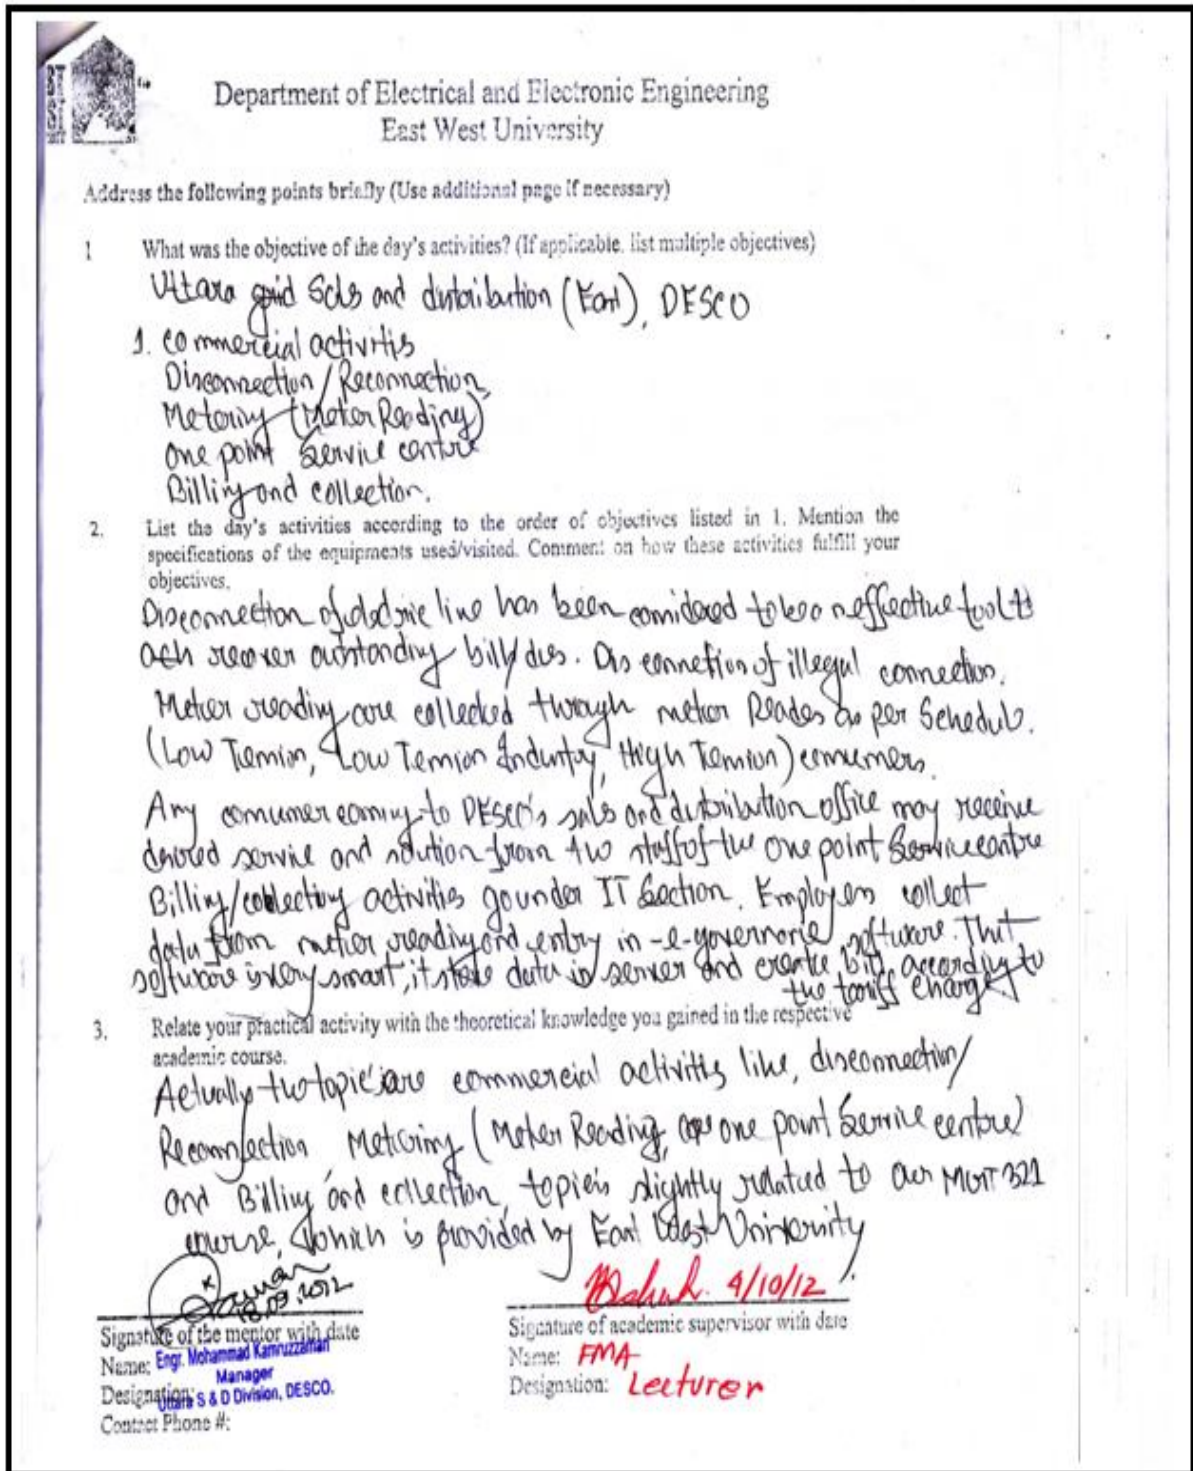 Department of Electrical and Electronic Engineering
East West University
Address the following points briefly (Use additional page if necessary)
1 What was the objective of the day's activities? (If applicable, list multiple objectives)
Uttara grid Sels and distribution (East), DESCO
1. Commercial activitis
Disconnection / Reconnection
Metering (Meter Reading)
One point Service centre
Billing and collection.
2. List the day's activities according to the order of objectives listed in 1. Mention the
specifications of the equipments used/visited. Comment on how these activities fulfill your
objectives.
Disconnection of electric line has been considered to be an effective tool to
recover outstanding bill/dues. Disconnection of illegal connection.
Meter reading are collected through meter Reades as per Schedule.
(Low Tension, Low Tension Industry, High Tension) consumers.
Any consumer coming to DESCO's sales and distribution office may receive
desired service and solution from the staff of the one point Service centre
Billing/collecting activities go under IT Section. Employees collect
data from meter reading and entry in -e- software. That
software is very smart, it store data in server and create bill according to
the tariff charge
3. Relate your practical activity with the theoretical knowledge you gained in the respective
academic course.
Actually the topic's are commercial activitis like, disconnection/
Reconnection Metering (Meter Reading, one point Service centre)
and Billing and collection, topic is slightly related to our MGT 321
course, which is provided by East West University
18.09.2012
4/10/12
Signature of the mentor with date
Name: Engr. Mohammad Kamruzzaman
Manager
Designation: Uttara S & D Division, DESCO.
Contact Phone #:
Signature of academic supervisor with date
Name: FMA
Designation: Lecturer